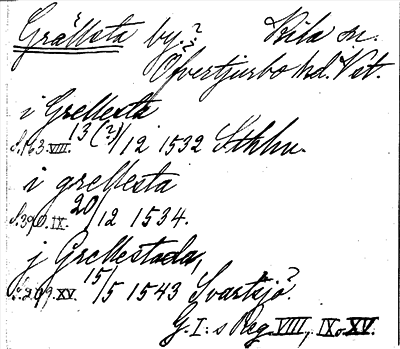 Grällsta by. ? Kila sn.
Öfvertjurbo hd. Vst.
i Grellesta
S. 163. VIII. 13 (?)/12 1532 Sthlm.
i grellesta
S. 390. IX. 20/12 1534.
j Grellestada,
S. 209. XV. 15/5 1543 Svartsjö.
G. I:s Reg. VIII, IX o. XV.